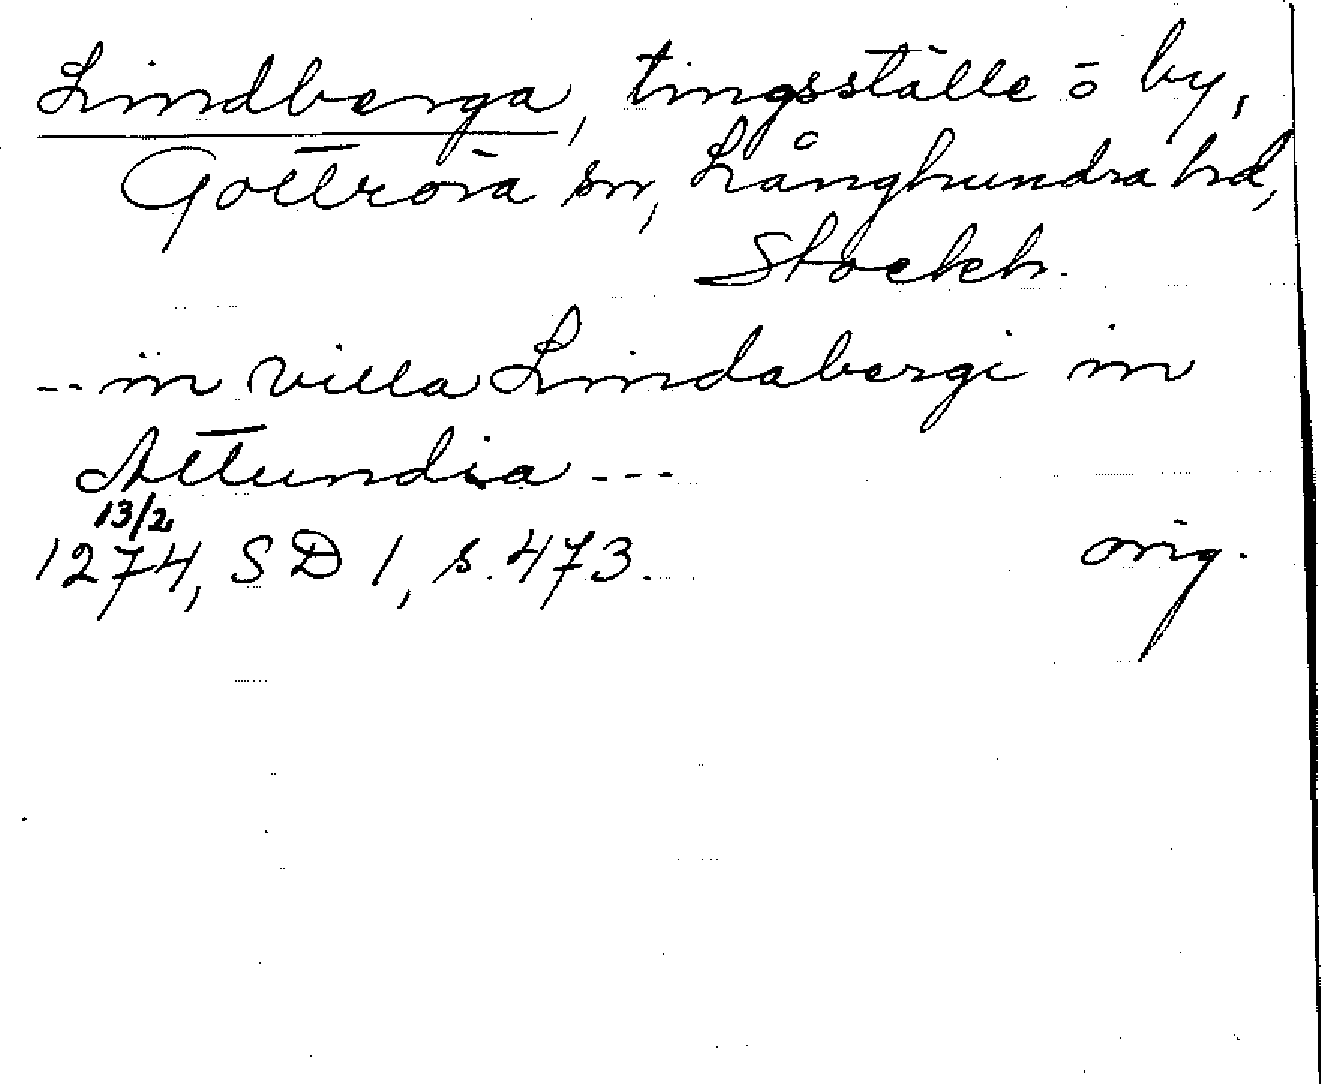 Lindberga, tingsställe ö by,
Gottröra sn, Långhundra hd,
Stockh.
-- in villa Lindabergi in
Attundia ---
13/2
1274, SD 1, s. 473. orig.